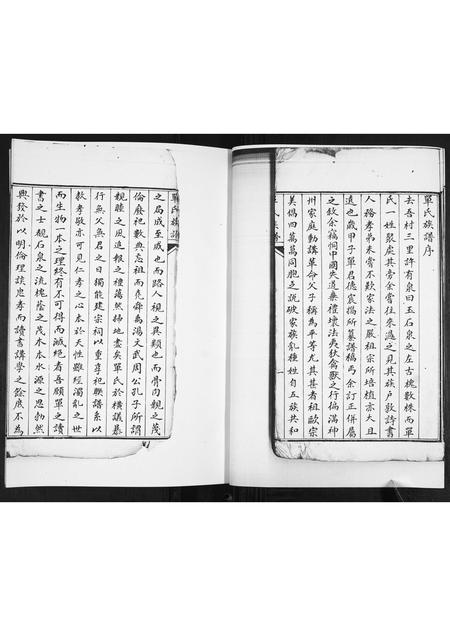 單氏族譜序
去吾村三里許有泉曰玉石泉之左古槐數株而單
氏一姓聚處其旁余嘗往來過之見其族戶敦詩書
人務孝弟未嘗不歎家法之嚴祖宗所培植亦大且
遠也歲甲子單君德宸攜所纂譜稿丐余訂正併屬
之敘余竊恫中國失道棄禮壞法夷狄禽獸之行徧滿神
州家庭動講革命父子稱為平等尤其甚者祖歐宗
美倡四萬萬同胞之說破家族亂種姓自五族共和
單氏族譜
之局成至戚也而路人視之異類也而骨肉親之蔑
倫廢祀數典忘祖而堯舜禹湯文武周公孔子所謂
親睦之風追報之禮蕩然掃地盡矣單氏於橫議暴
行無父無君之日獨能建宗祠以重享祀聯譜系以
敦孝敬亦可見仁孝之心本於天性雖經濁亂之世
而生物一本之理終有不可得而滅絕者吾願單之讀
書之士觀石泉之流槐蔭之茂木本水源之思勃然
興發於以明倫理談忠孝而讀書講學之餘底不為